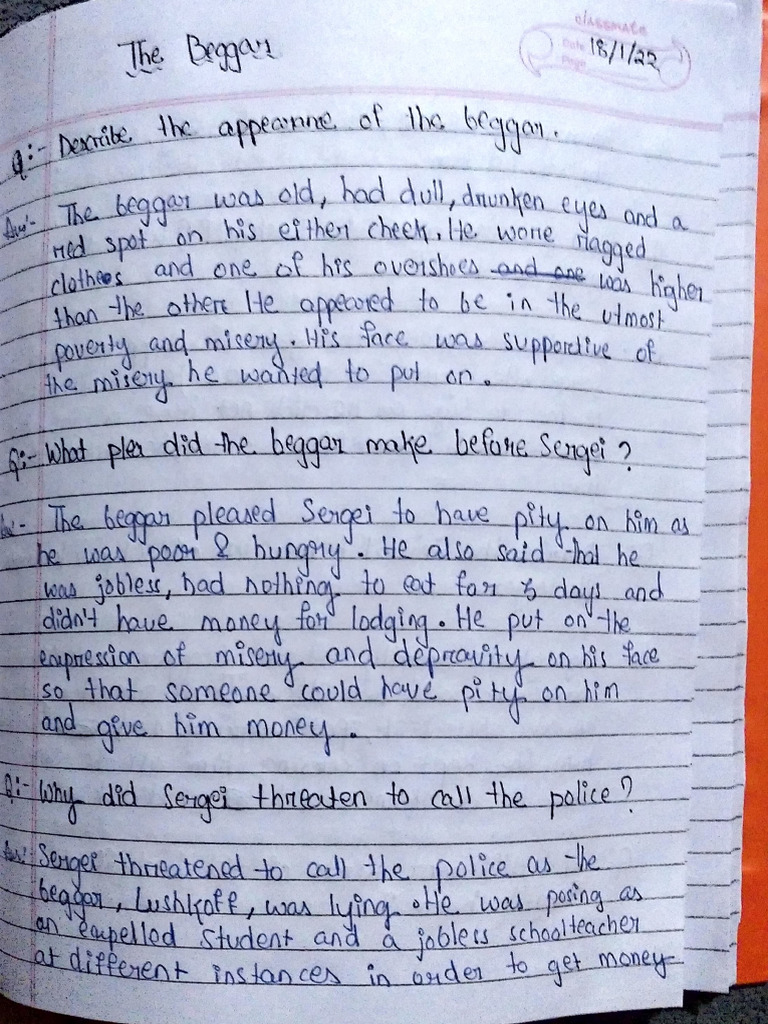 classmate
Date 18/1/22
Page
The Beggar
Q:- Describe the appearnne of the beggar.
Ans:- The beggar was old, had dull, drunken eyes and a
red spot on his either cheek. He wore ragged
clothes and one of his overshoes and one was higher
than the other. He appeared to be in the utmost
poverty and misery. His face was supportive of
the misery he wanted to put on.
Q:- What plea did the beggar make before Sergei?
Ans:- The beggar pleased Sergei to have pity on him as
he was poor & hungry. He also said that he
was jobless, had nothing to eat for 3 days and
didn't have money for lodging. He put on the
expression of misery and depravity on his face
so that someone could have pity on him
and give him money.
Q:- Why did Sergei threaten to call the police?
Ans:- Sergei threatened to call the police as the
beggar, Lushkoff, was lying. He was posing as
an expelled student and a jobless schoolteacher
at different instances in order to get money